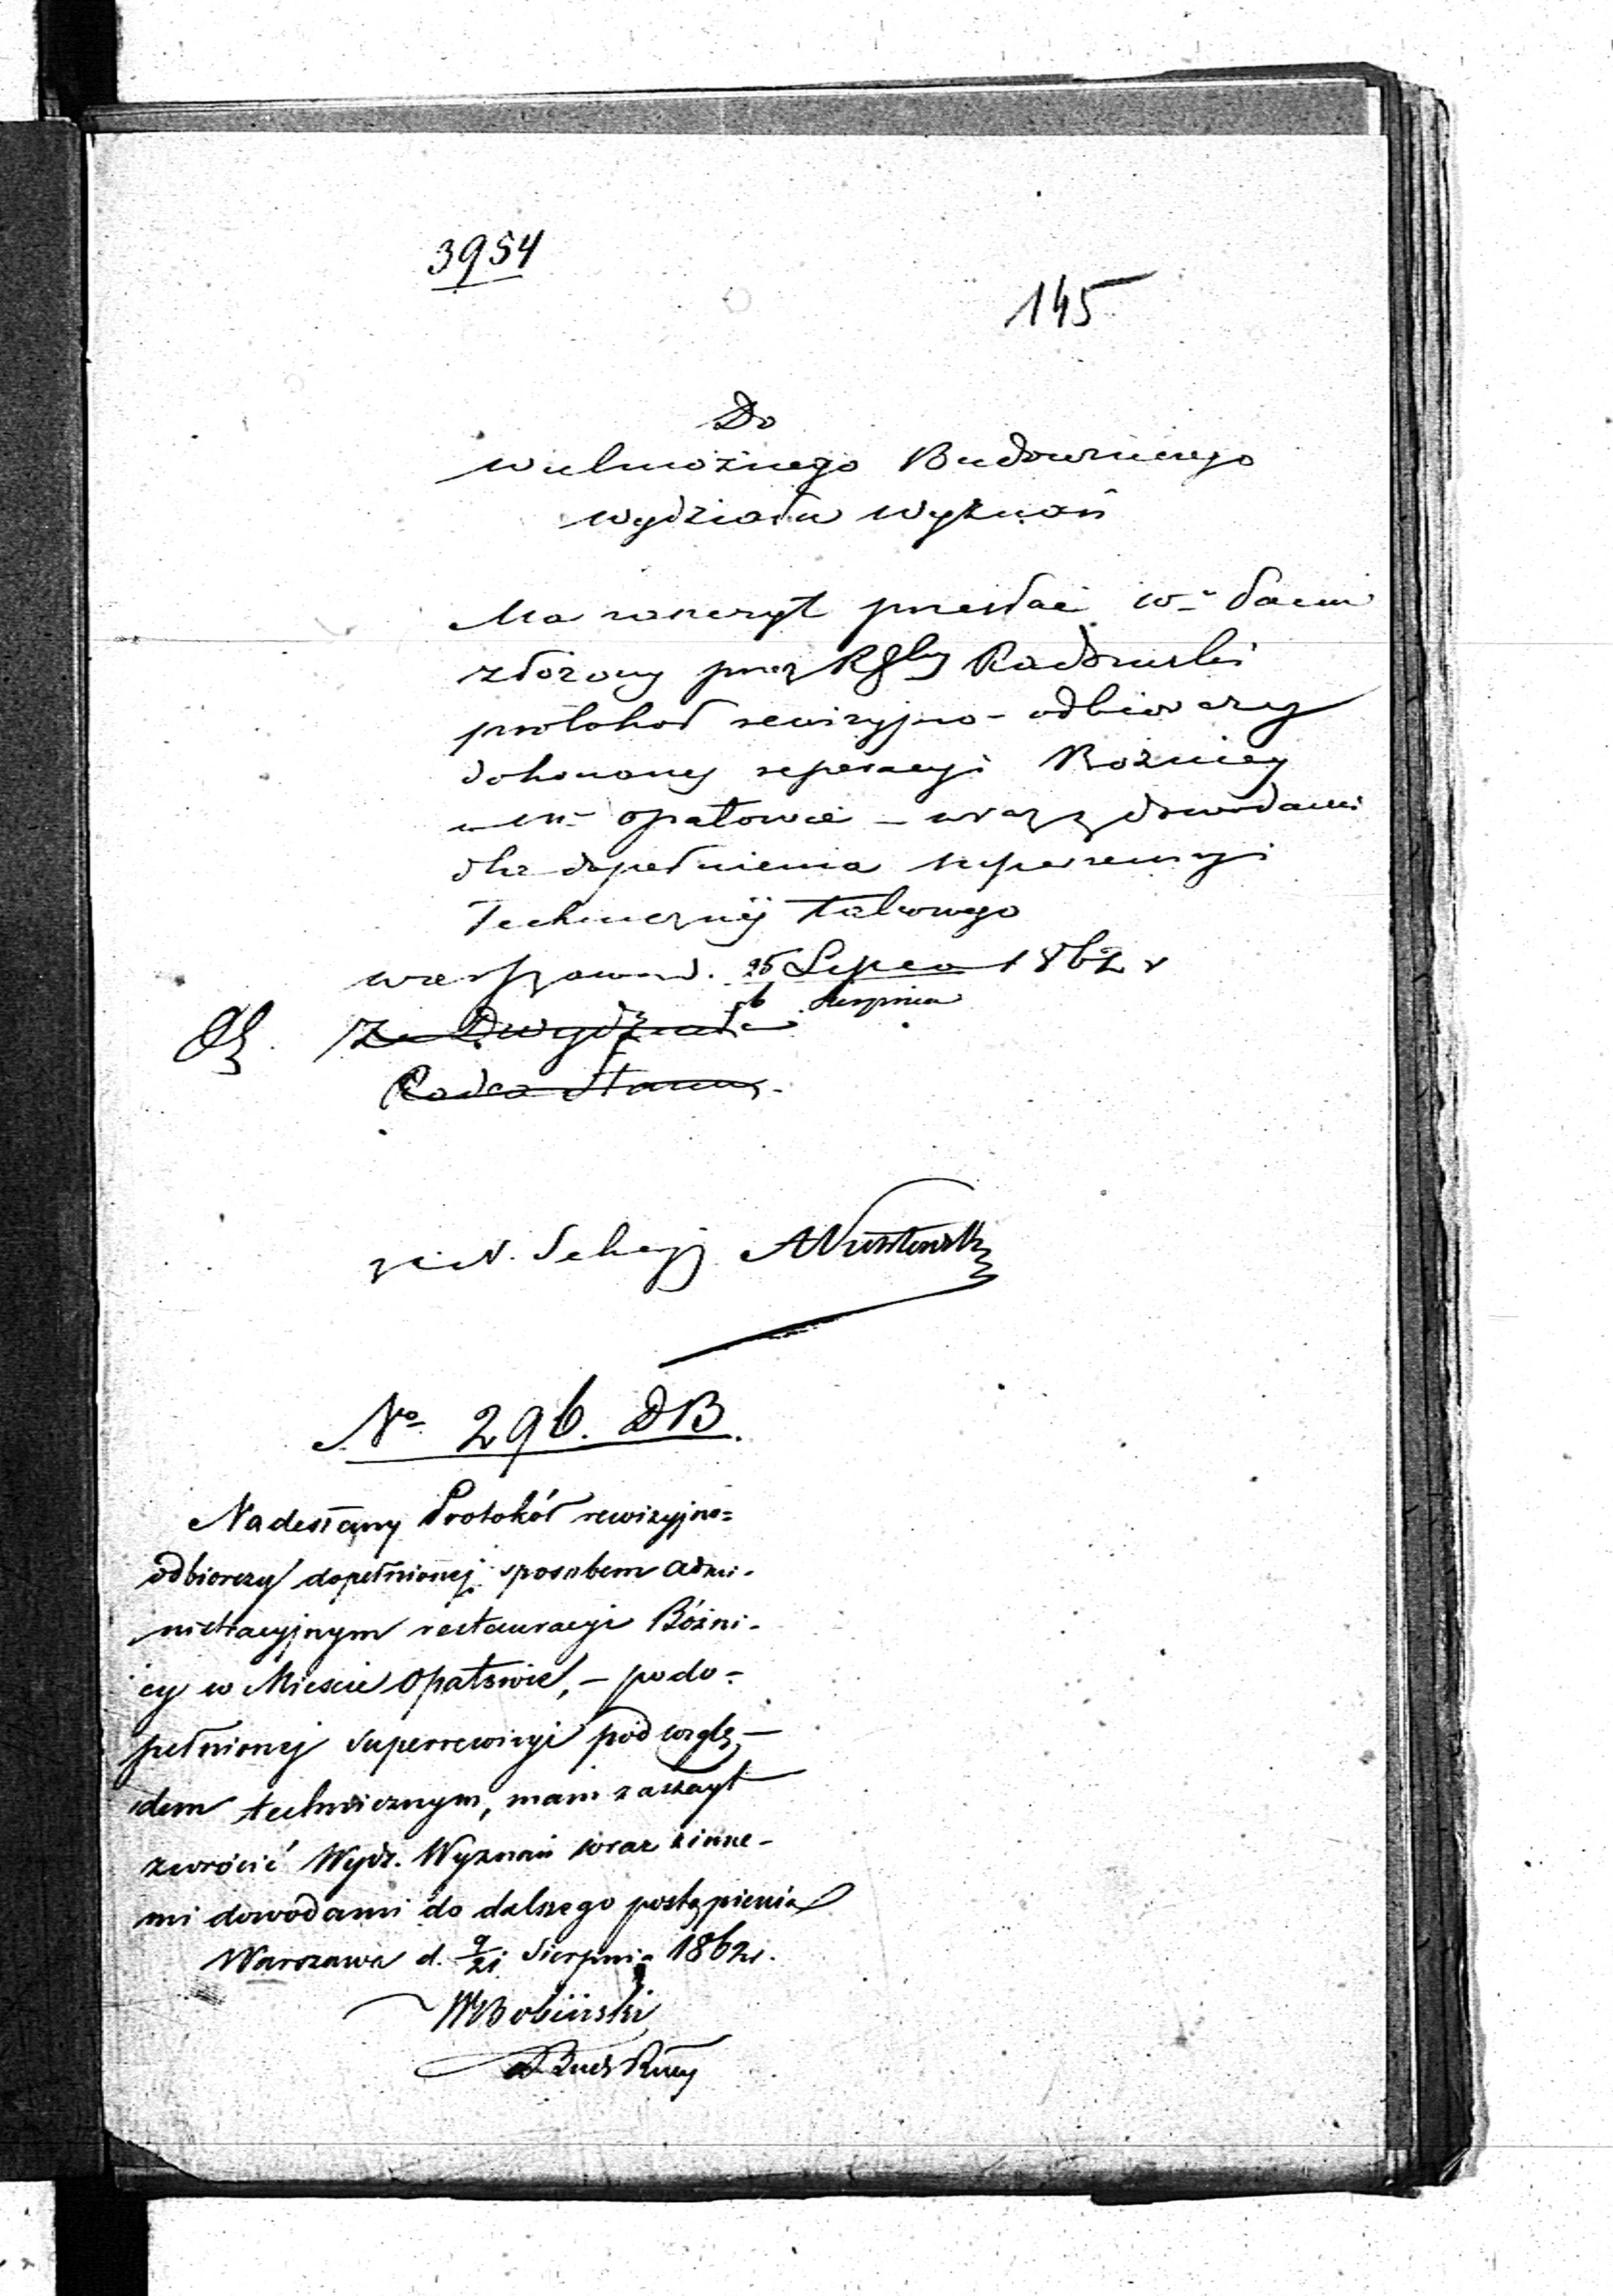 3954
145
Do
Wielmożnego Budowniczego
Wydziału Wyznań
Ma zaszczyt przesłać
złożony przez Radomski
protokół rewizyjno-odbiorczy
dokonanej reperacyi Bożnicy
w Mie Opatowie – wraz z dowodami
dla dopełnienia superrewizyi
Technicznej takowego
Warszawa d. 25 Lipca 1862 r
6 Sierpnia
Radca Stanu
N. Sekcyj
No 296. DB.
Nadesłany Protokół rewizyjno=
odbiorczy dopełnionej sposobem admi-
nistracyjnym restauracyi Bóżni-
cy w Mieście Opatowie, – po do-
pełnionej superrewizyi pod wzglę-
dem technicznym, mam zaszczyt
zwrócić Wydz. Wyznań wraz z inne-
mi dowodami do dalszego postąpienia
Warszawa d. 9/21 Sierpnia 1862 r.
WBobiński